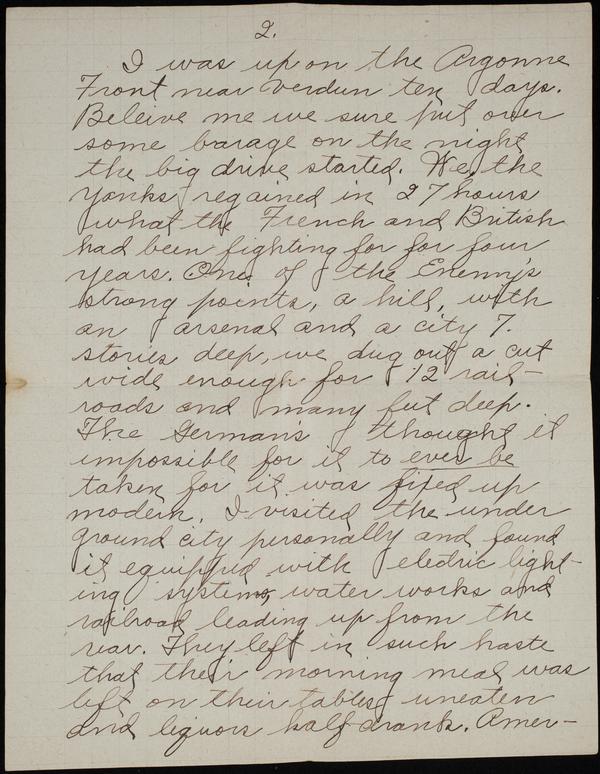 2.
I was up on the Argonne
Front near Verdun ten days.
Beleive me we sure put over
some barage on the night
the big drive started. We, the
Yanks, regained in 27 hours
what the French and British
had been fighting for for four
years. One of the Enemy's
strong points, a hill, with
an arsenal and a city 7.
stories deep, we dug out a cut
wide enough for 12 rail-
roads and many fut deep.
The German's thought it
impossible for it to ever be
taken for it was fixed up
modern. I visited the under
ground city personally and found
it equipped with electric light-
ing systems, water works and
railroad leading up from the
rear. They left in such haste
that their morning meal was
left on their tables uneaten
and liquors half drank. Amer-